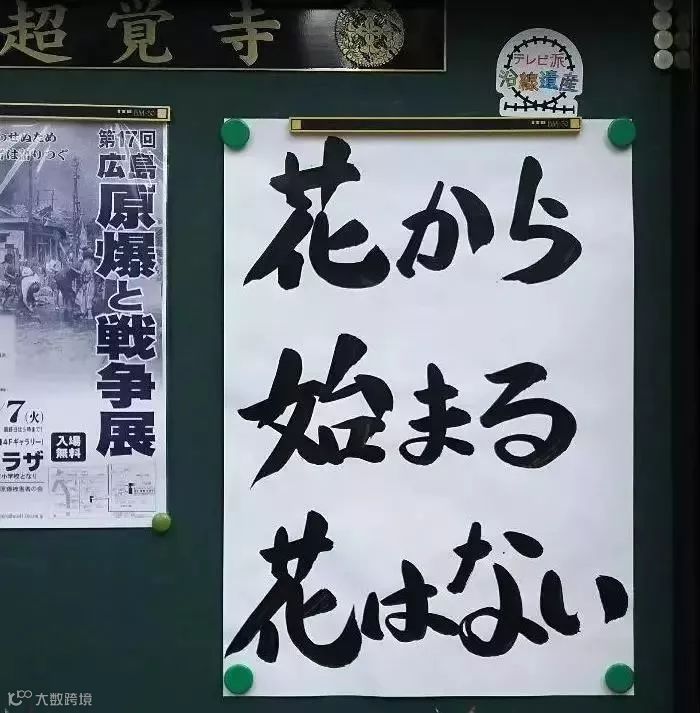 超覚寺
テレビ派
沿線遺産
花から
始まる
花はない
第17回
広島
原爆と戦争展
7(火)
4Fギャラリー)
ラザ
小学校となり
入場
無料
大数跨境